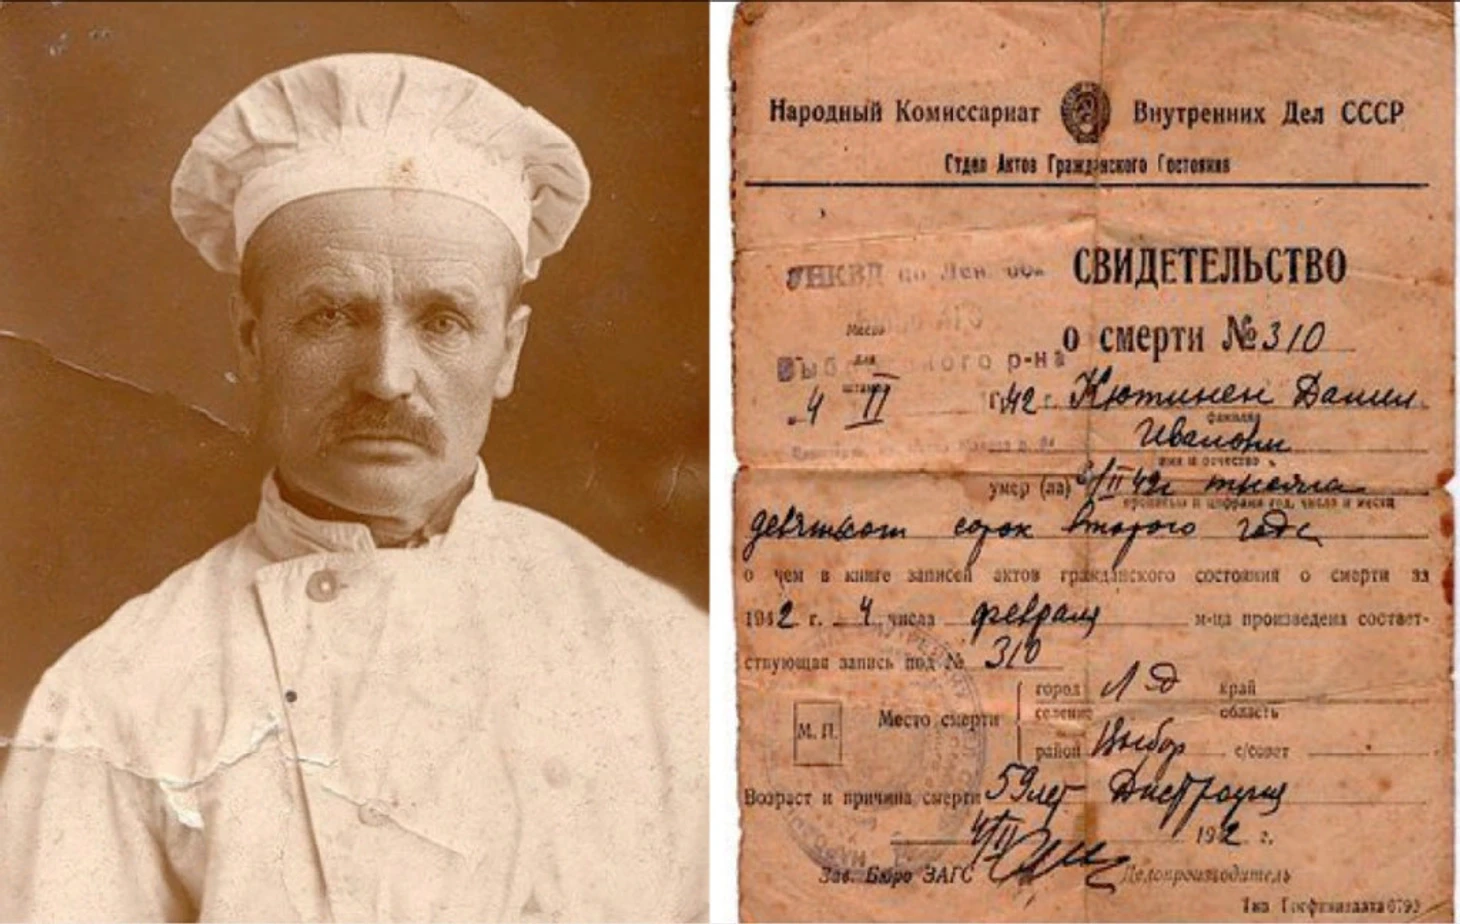 Народный Комиссариат Внутренних Дел СССР
Отдел Актов Гражданского Состояния
УНКВД по Лен. обл.
СВИДЕТЕЛЬСТВО
Место для штампа
о смерти № 310
р-на
„4 II 42 г. Кютинен Данил
фамилия
Иванович
имя и отчество
умер (ла) II 42г тысяча
прописью и цифрами год, число и месяц
девятьсот сорок второго года
о чем в книге записей актов гражданского состояния о смерти за
1942 г. 4 числа февраля м-ца произведена соответ-
ствующая запись под № 310
город Л-д край
селение область
М. П. Место смерти
район Выбор с/совет
Возраст и причина смерти 59 лет Дистрофия
4/II 1942 г.
Зав. Бюро ЗАГС Делопроизводитель